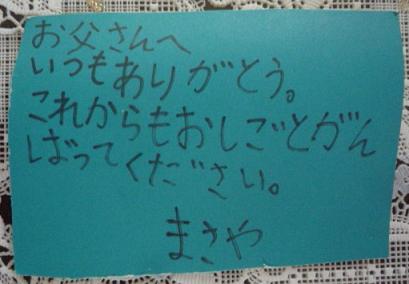 お父さんへ
いつもありがとう。
これからもおしごとがん
ばってください。
まさや